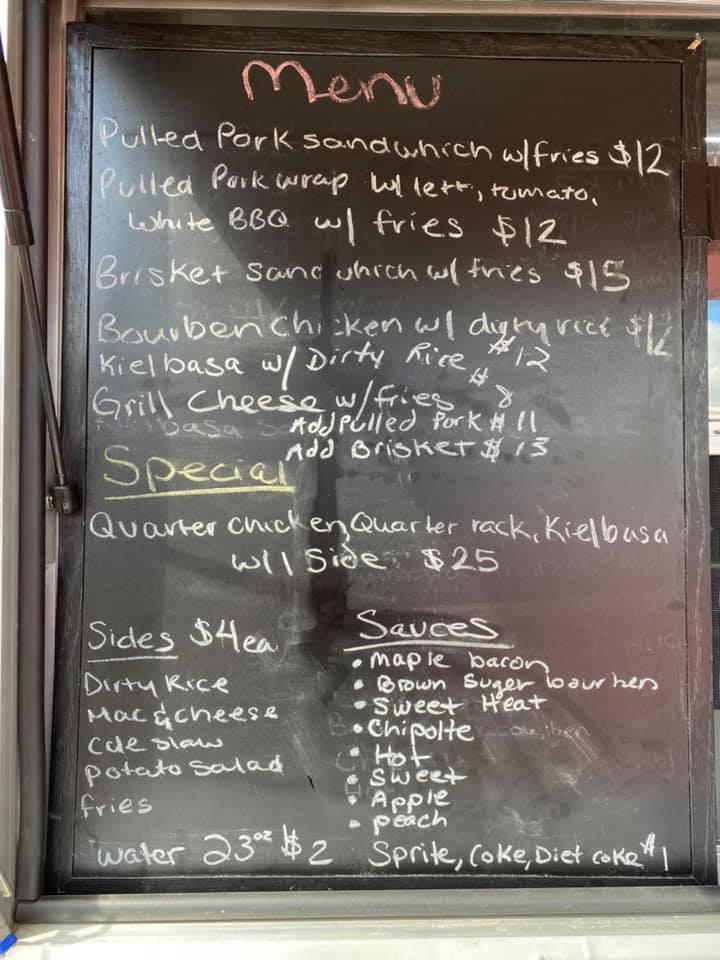 Menu
Pulled Pork sandwhich w/fries $12
Pulled Pork wrap w/ lett, tomato,
White BBQ w/ fries $12
Brisket sandwhich w/ fries $15
Bourben chicken w/ dirty rice $12
Kielbasa w/ Dirty Rice $12
Grill Cheese w/fries $8
Add Pulled Pork $11
Add Brisket $13
Special
Quarter chicken, Quarter rack, Kielbasa
w/ 1 Side $25
Sides $4ea
Dirty Rice
Mac & cheese
cole slaw
potato salad
fries
Sauces
• Maple bacon
• Brown Suger bourben
• Sweet Heat
• Chipolte
• Hot
• Sweet
• Apple
• peach
water 23oz $2
Sprite, Coke, Diet coke $1